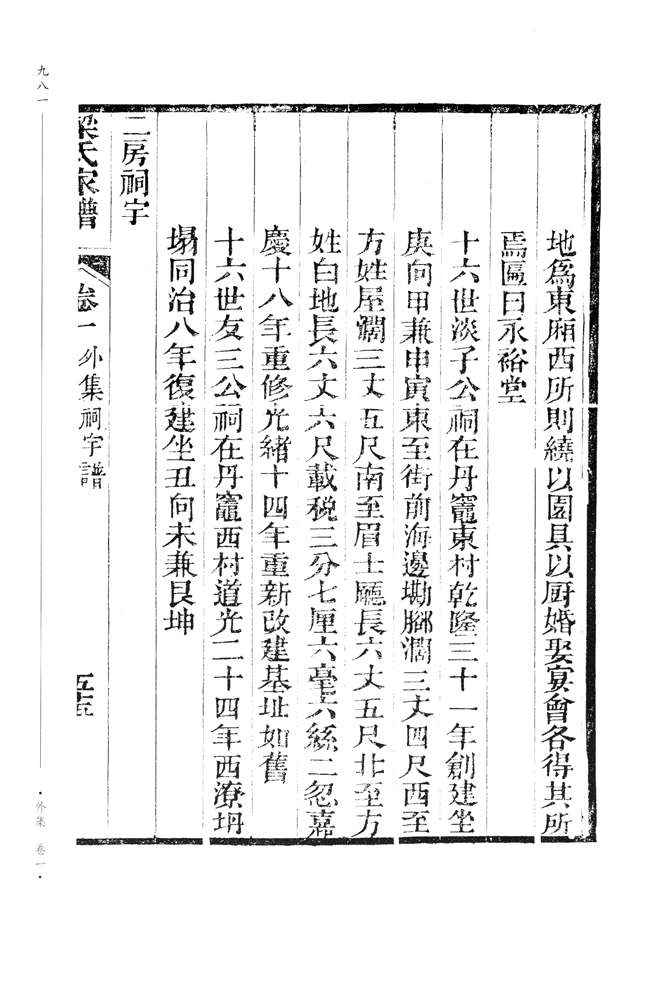 地爲東廂西所則繞以園具以厨婚娶宴會各得其所
焉匾曰永裕堂
十六世淡子公祠在丹竈東村乾隆三十一年創建坐
庚向甲兼申寅東至街前海邊墈腳濶三丈四尺西至
方姓屋濶三丈五尺南至眉士廳長六丈五尺北至方
姓白地長六丈六尺載稅三分七厘六毫六絲二忽嘉
慶十八年重修光緒十四年重新改建基址如舊
十六世友三公祠在丹竈西村道光二十四年西潦坍
塌同治八年復建坐丑向未兼艮坤
二房祠宇
梁氏家譜 卷一 外集祠宇譜
九八一
·外集 卷一·